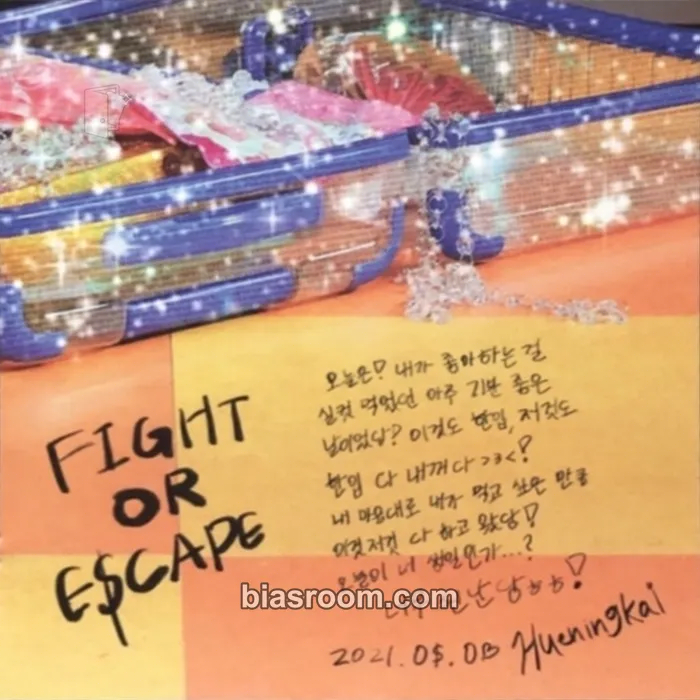 FIGHT
OR
E$CAPE
오늘은! 내가 좋아하는 걸
실컷 먹었던 아주 기분 좋은
날이었답? 이것도 한입, 저것도
한입 다 내꺼다 >3<!
내 마음대로 내가 먹고 싶은 만큼
이것저것 다 하고 왔당!
오늘이 내 생일인가...?
biasroom.com
2021. 0$. 0B Hueningkai